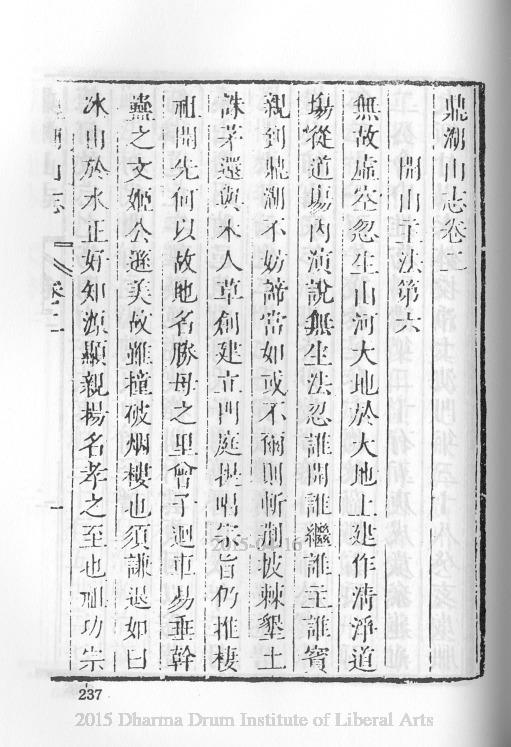 鼎湖山志卷二
開山主法第六
無故虛空忽生山河大地於大地上建作清淨道
塲從道塲內演說無生法忍誰開誰繼誰主誰賓
親到鼎湖不妨諦當如或不爾則斬荆披棘墾土
誅茅還與木人草創建立門庭提唱宗旨仍推棲
祖開先何以故地名勝母之里曾子迴車易垂幹
蠱之文姬公遜美故雖撞破烟樓也須謙退如曰
冰山於水正好知源顯親揚名孝之至也祖功宗
湖山志 卷二 一
237
2015-07-16
2015 Dharma Drum Institute of Liberal Arts